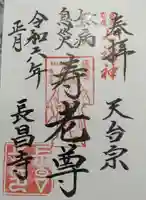 奉拝
天台宗
寿老尊
無病
息災
令和
年
正月
長昌寺